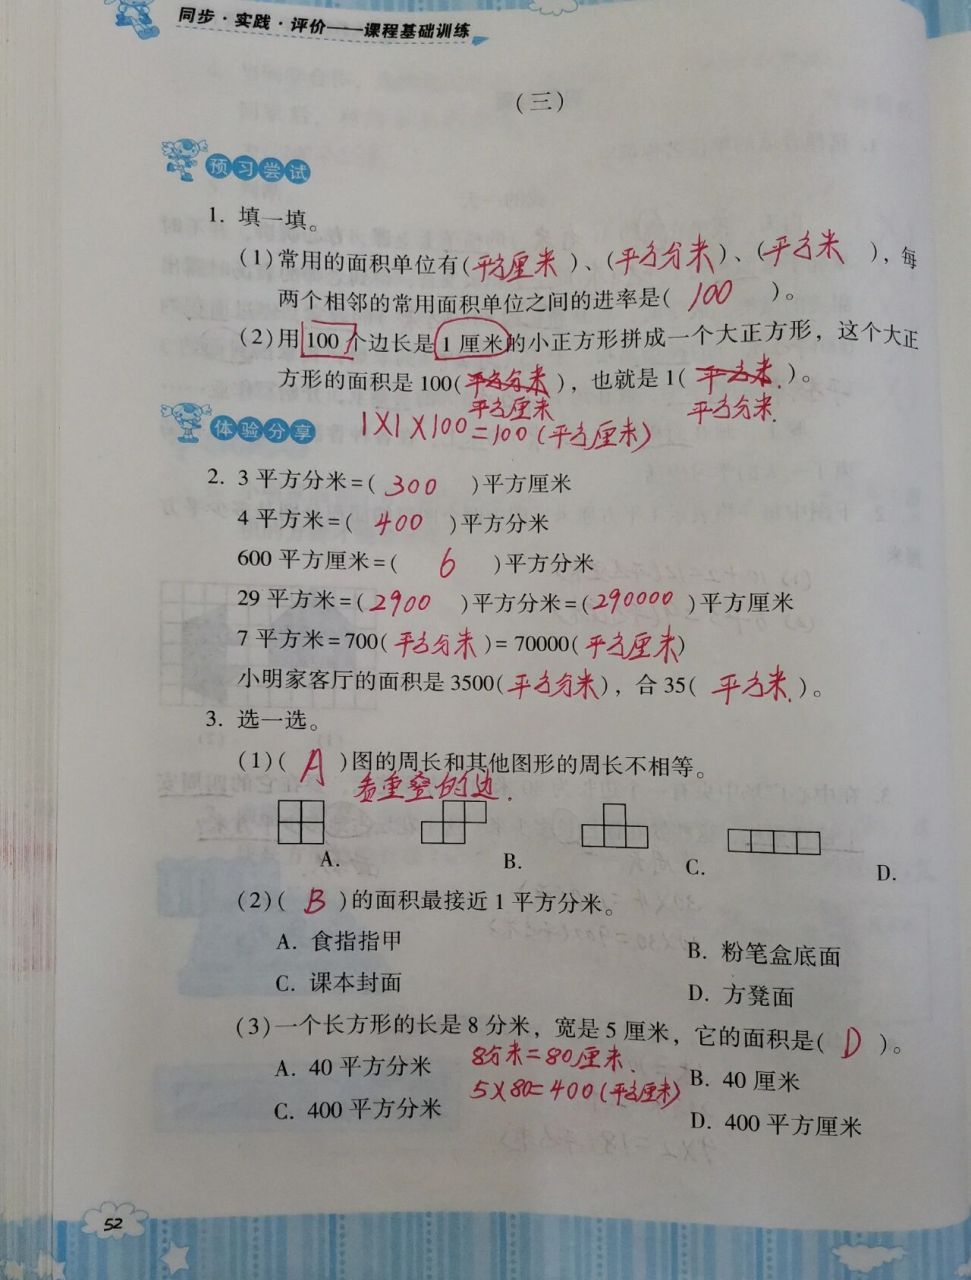 同步·实践·评价——课程基础训练
(三)
预习尝试
1. 填一填。
(1)常用的面积单位有(平方厘米)、(平方分米)、(平方米)，每
两个相邻的常用面积单位之间的进率是(100)。
(2)用100个边长是1厘米的小正方形拼成一个大正方形，这个大正
方形的面积是100(平方分米)，也就是1(平方米.)。
平方厘米 平方分米.
1×1×100=100(平方厘米)
体验分享
2. 3平方分米=(300)平方厘米
4平方米=(400)平方分米
600平方厘米=(6)平方分米
29平方米=(2900)平方分米=(290000)平方厘米
7平方米=700(平方分米)=70000(平方厘米)
小明家客厅的面积是3500(平方分米)，合35(平方米.)。
3. 选一选。
(1)(A)图的周长和其他图形的周长不相等。
看重叠的边.
A. B. C. D.
(2)(B)的面积最接近1平方分米。
A. 食指指甲 B. 粉笔盒底面
C. 课本封面 D. 方凳面
(3)一个长方形的长是8分米，宽是5厘米，它的面积是(D)。
8分米=80厘米.
A. 40平方分米 B. 40厘米
5×80=400(平方厘米)
C. 400平方分米 D. 400平方厘米
52